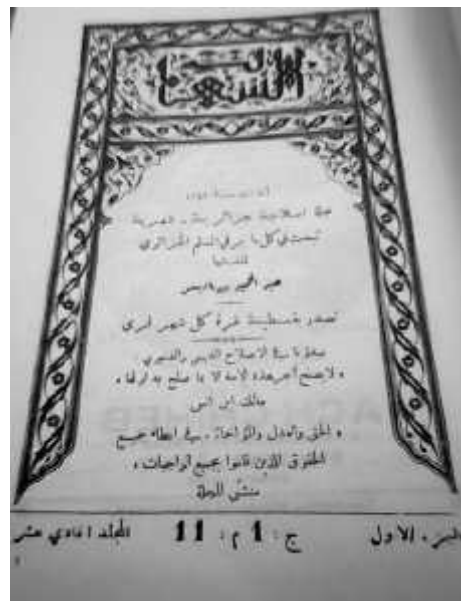 الشهاب
مجلة اسلامية جزائرية شهرية
تبحث في كل ما يرقي المسلم الجزائري
لمنشئها
عبد الحميد بن باديس
تصدر بقسنطينة غرة كل شهر قمري
مبدؤنا في الاصلاح الديني والدنيوي :
« لا يصلح آخر هذه الأمة الا بما صلح به اولها »
مالك ابن انس
« الحق والعدل والمؤاخاة ، في اعطاء جميع
الحقوق الذين قاموا بجميع الواجبات »
منشئ المجلة
الجزء الاول ج : 1 م : 11 المجلد الحادي عشر